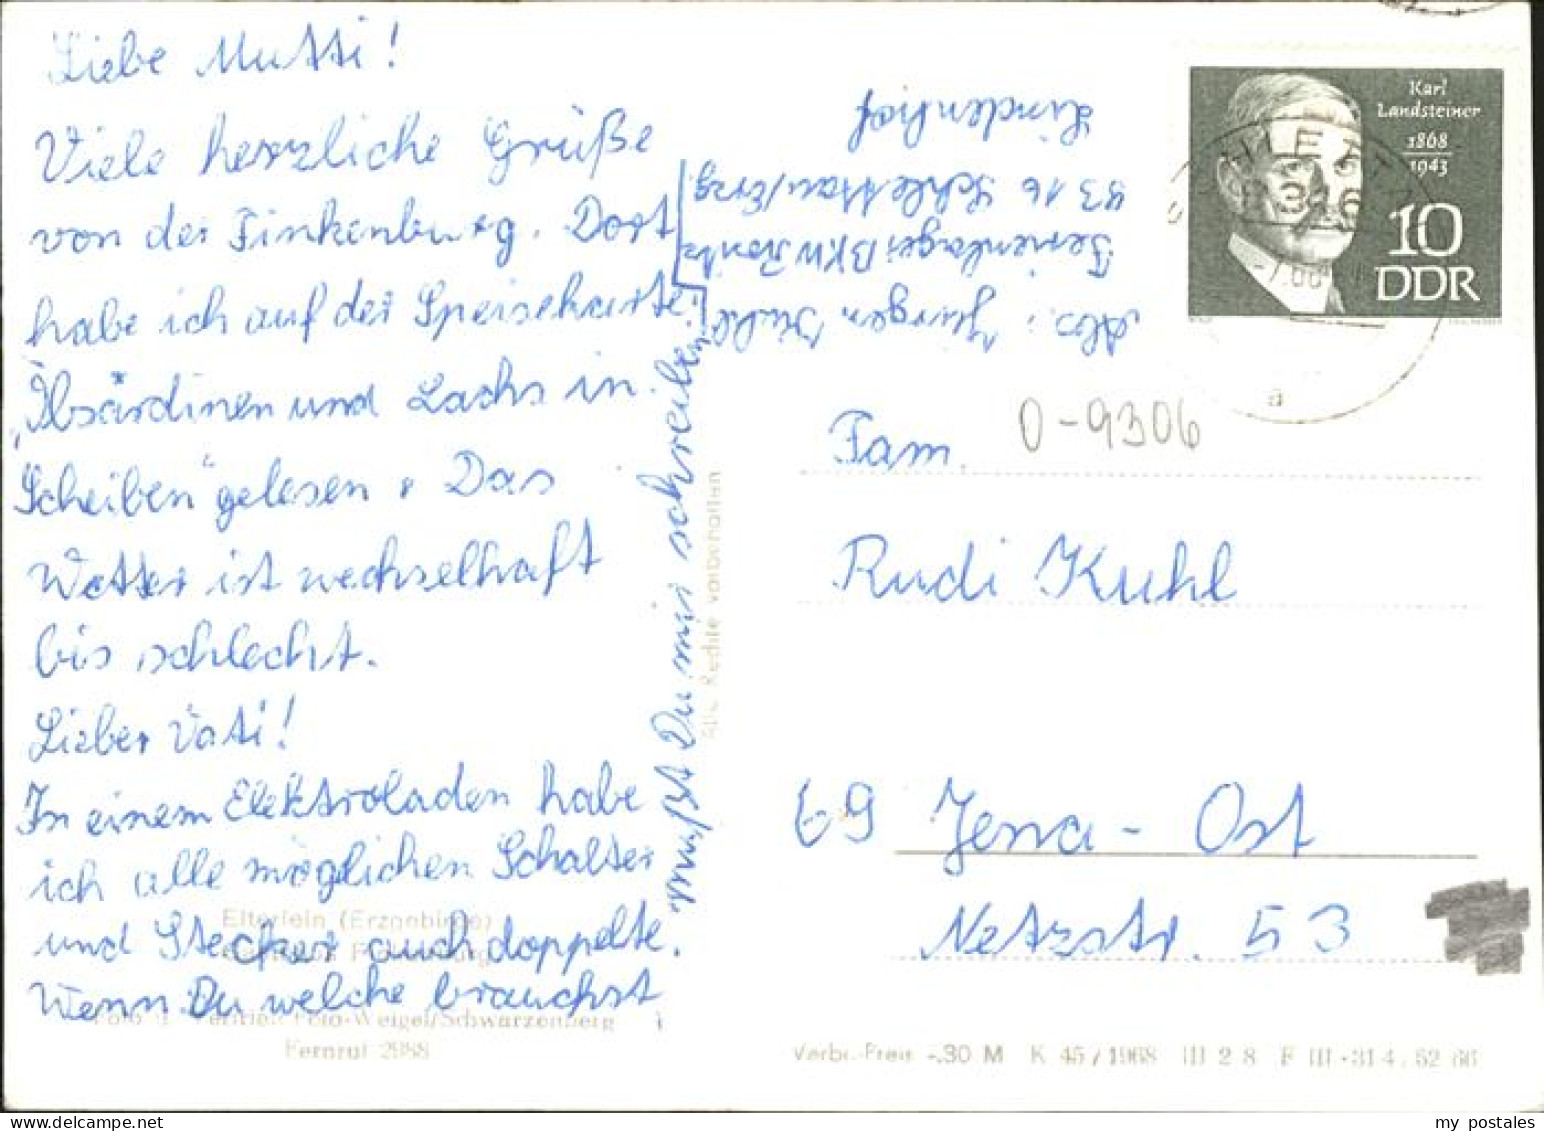 Liebe Mutti!
Viele herzliche Grüße
von der Finkenburg. Dort
habe ich auf der Speisekarte
„Ölsardinen und Lachs in
Scheiben" gelesen. Das
Wetter ist wechselhaft
bis schlecht.
Lieber Vati!
In einem Elektroladen habe
ich alle möglichen Schalter
und Stecker auch doppelte.
Wenn Du welche brauchst
mußt Du mir schreiben.
Elterlein (Erzgebirge)
Foto u. Vertrieb: Foto-Weigel/Schwarzenberg
Fernruf 2988
Alle Rechte vorbehalten
Abs.: Jürgen Kuhl
Ferienlager BKW Borna
9316 Schlettau/Erzg.
Lindenhof
Karl
Landsteiner
1868
1943
10
DDR
a
0-9306
Fam.
Rudi Kuhl
69 Jena-Ost
Netzstr. 53
Verbr.-Preis -.30 M K 45/1968 III 2 8 F III-314. 52 66
my postales